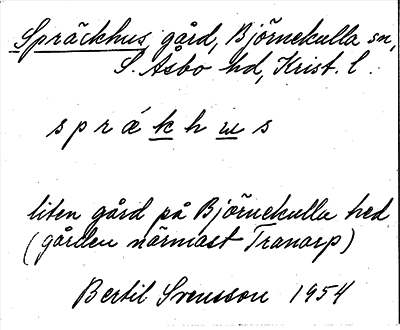 Spräckhus gård, Björnekulla sn,
S. Åsbo hd, Krist. l.
s p r ä k h u s
liten gård på Björnekulla hed
(gården närmast Tranarp)
Bertil Svensson 1954